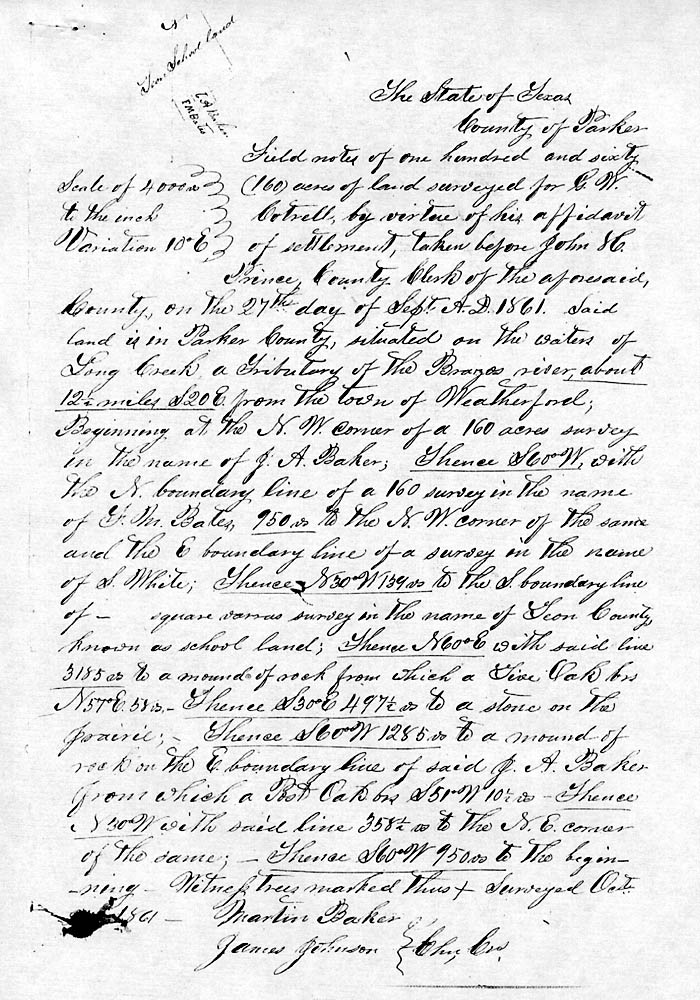 Leon School land
L A Baker
F M Bates
The State of Texas
County of Parker
Field notes of one hundred and sixty
Scale of 4000 vs (160) acres of land surveyed for G. W.
to the inch Cotrell, by virtue of his affidavit
Variation 10° E of settlement, taken before John H.
Prince, County Clerk of the aforesaid,
County, on the 27th day of Sept. A.D. 1861. Said
land is in Parker County, situated on the waters of
Long Creek a Tributary of the Brazos river, about
12½ miles S20E from the town of Weatherford;
Beginning at the N. W. corner of a 160 acres survey
in the name of J. A. Baker; Thence S60°W, with
the N. boundary line of a 160 survey in the name
of F. M. Bates, 950 vs to the N. W. corner of the same
and the E boundary line of a survey in the name
of S. White; Thence N30°W 139 vs to the S. boundary line
of — square varras survey in the name of Leon County
known as school land; Thence N60°E with said line
3185 vs to a mound of rock from which a Live Oak brs
N57°E 58 vs – Thence S30°E 497½ vs to a stone on the
prairie; – Thence S60°W 1285 vs to a mound of
rock on the E. boundary line of said J. A. Baker
from which a Post Oak brs S51°W 10½ vs – Thence
N30°W with said line 358½ vs to the N. E. corner
of the same; – Thence S60°W 950 vs to the begin–
–ning – Witness trees marked thus + Surveyed Oct.
1861 – Martin Baker
James Johnson } Chn. Crs.